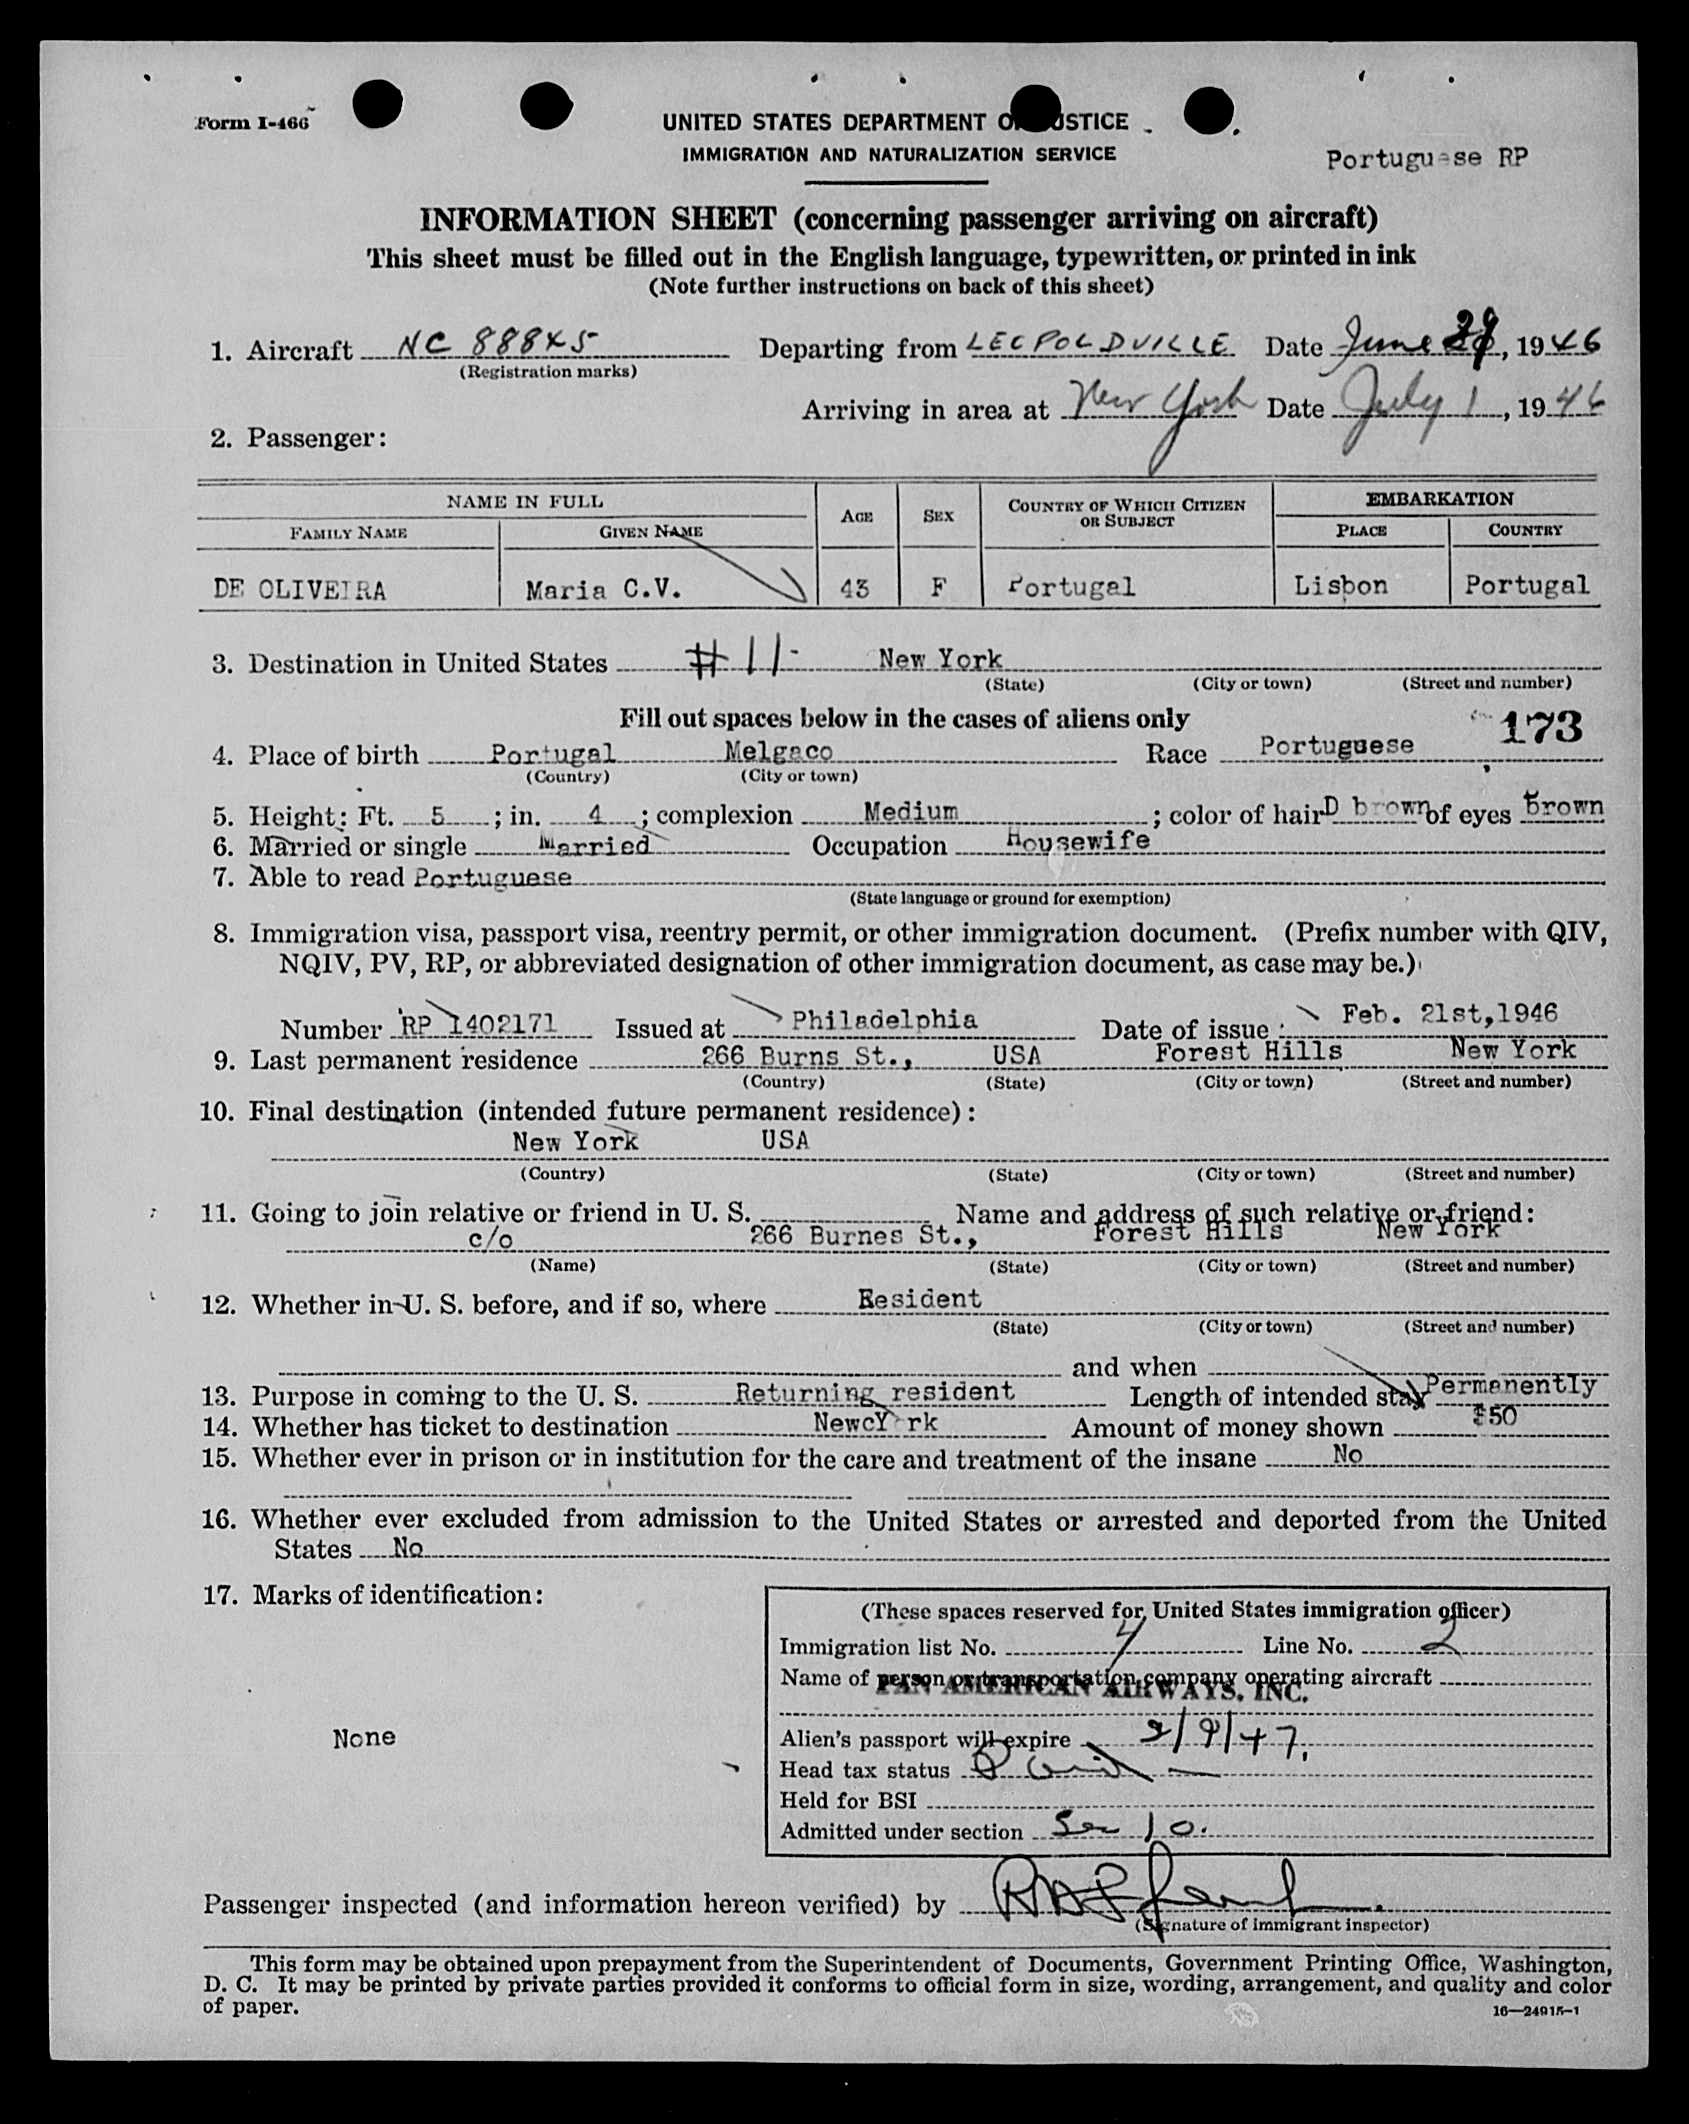 Form I-466
UNITED STATES DEPARTMENT OF JUSTICE
IMMIGRATION AND NATURALIZATION SERVICE
Portuguese RP
INFORMATION SHEET (concerning passenger arriving on aircraft)
This sheet must be filled out in the English language, typewritten, or printed in ink
(Note further instructions on back of this sheet)
1. Aircraft NC 88845 Departing from LEOPOLDVILLE Date June , 1946
(Registration marks)
Arriving in area at New York Date July 1, 1946
2. Passenger:
NAME IN FULL AGE SEX COUNTRY OF WHICH CITIZEN OR SUBJECT EMBARKATION
FAMILY NAME GIVEN NAME PLACE COUNTRY
DE OLIVEIRA Maria C.V. 43 F Portugal Lisbon Portugal
3. Destination in United States #11- New York
(State) (City or town) (Street and number)
Fill out spaces below in the cases of aliens only 173
4. Place of birth Portugal Melgaco Race Portuguese
(Country) (City or town)
5. Height: Ft. 5 ; in. 4 ; complexion Medium ; color of hair D brown of eyes brown
6. Married or single Married Occupation Housewife
7. Able to read Portuguese
(State language or ground for exemption)
8. Immigration visa, passport visa, reentry permit, or other immigration document. (Prefix number with QIV,
NQIV, PV, RP, or abbreviated designation of other immigration document, as case may be.)
Number RP 1402171 Issued at Philadelphia Date of issue : Feb. 21st,1946
9. Last permanent residence 266 Burns St., USA Forest Hills New York
(Country) (State) (City or town) (Street and number)
10. Final destination (intended future permanent residence):
New York USA
(Country) (State) (City or town) (Street and number)
11. Going to join relative or friend in U. S. Name and address of such relative or friend:
c/o 266 Burnes St., Forest Hills New York
(Name) (State) (City or town) (Street and number)
12. Whether in U. S. before, and if so, where Resident
(State) (City or town) (Street and number)
and when
13. Purpose in coming to the U. S. Returning resident Length of intended stay Permanently
14. Whether has ticket to destination NewcY rk Amount of money shown $50
15. Whether ever in prison or in institution for the care and treatment of the insane No
16. Whether ever excluded from admission to the United States or arrested and deported from the United
States No
17. Marks of identification:
None
(These spaces reserved for United States immigration officer)
Immigration list No. 4 Line No. 2
Name of person or transportation company operating aircraft
PAN AMERICAN AIRWAYS, INC.
Alien's passport will expire 2/9/47.
Head tax status Paid
Held for BSI
Admitted under section Sec 10.
Passenger inspected (and information hereon verified) by
(Signature of immigrant inspector)
This form may be obtained upon prepayment from the Superintendent of Documents, Government Printing Office, Washington,
D. C. It may be printed by private parties provided it conforms to official form in size, wording, arrangement, and quality and color
of paper.
16—24915-1